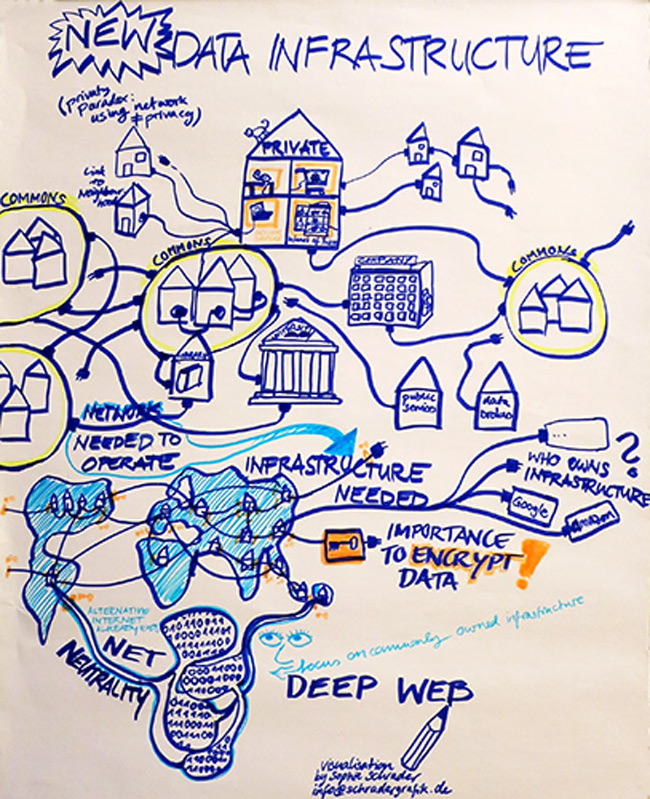 NEW DATA INFRASTRUCTURE
(privacy
paradox:
using network
≠ privacy)
PRIVATE
Link
to
Neighbour
hood
COMMONS
COMMONS
COMPANY
COMMONS
LIBRARY
UNIVERSITY
public
services
data
broker
NETWORK
NEEDED TO
OPERATE
INFRASTRUCTURE
NEEDED
WHO OWNS
INFRASTRUCTURE
?
Google
Amazon
IMPORTANCE
TO ENCRYPT
DATA !
ALTERNATIVE
INTERNET
ALREADY EXISTS
NET
NEUTRALITY
focus on commonly owned infrastructure
DEEP WEB
visualisation
by Sophie Schrader
info@schradergrafik.de